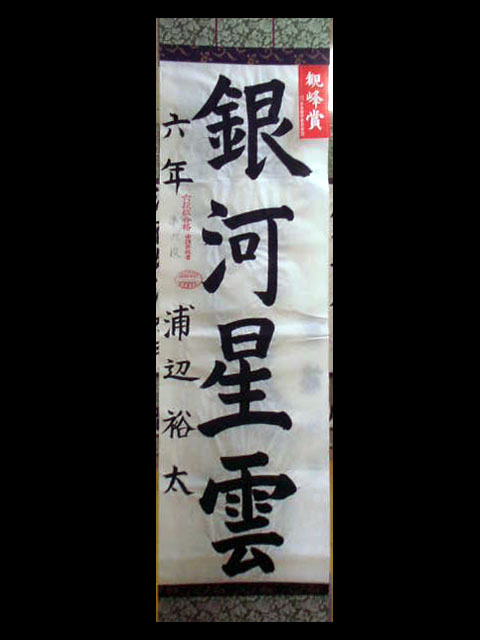 観峰賞
銀河星雲
六年 浦辺裕太